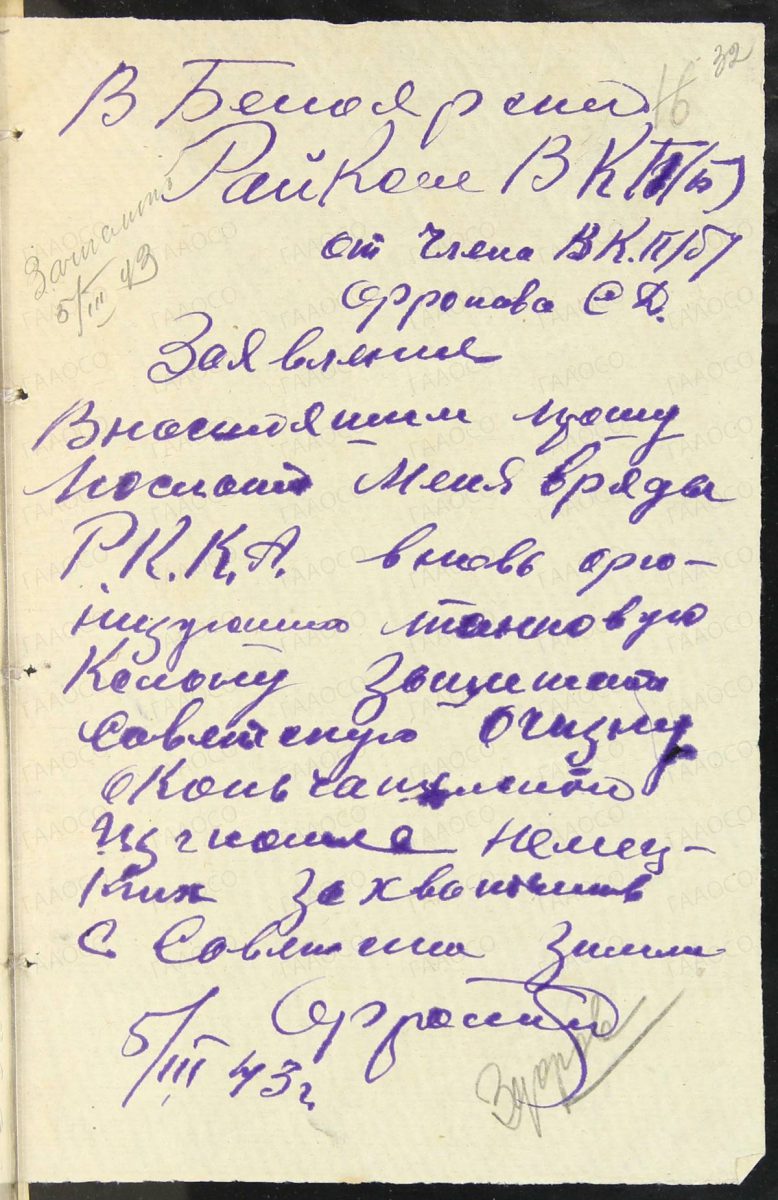 32
16
В Белоярский
Райком ВКП/б/
от члена ВК.П/б/
Афронова С Д.
Зачислить
5/III 43
Заявления
Внастоящим прошу
послать меня вряды
Р.К.К.А. вновь орга-
низующию танковую
Колону защищать
советскую Отчизну
окончательной
изгнания немец-
ких захватчиков
С Советской земли
5/III 43 г.